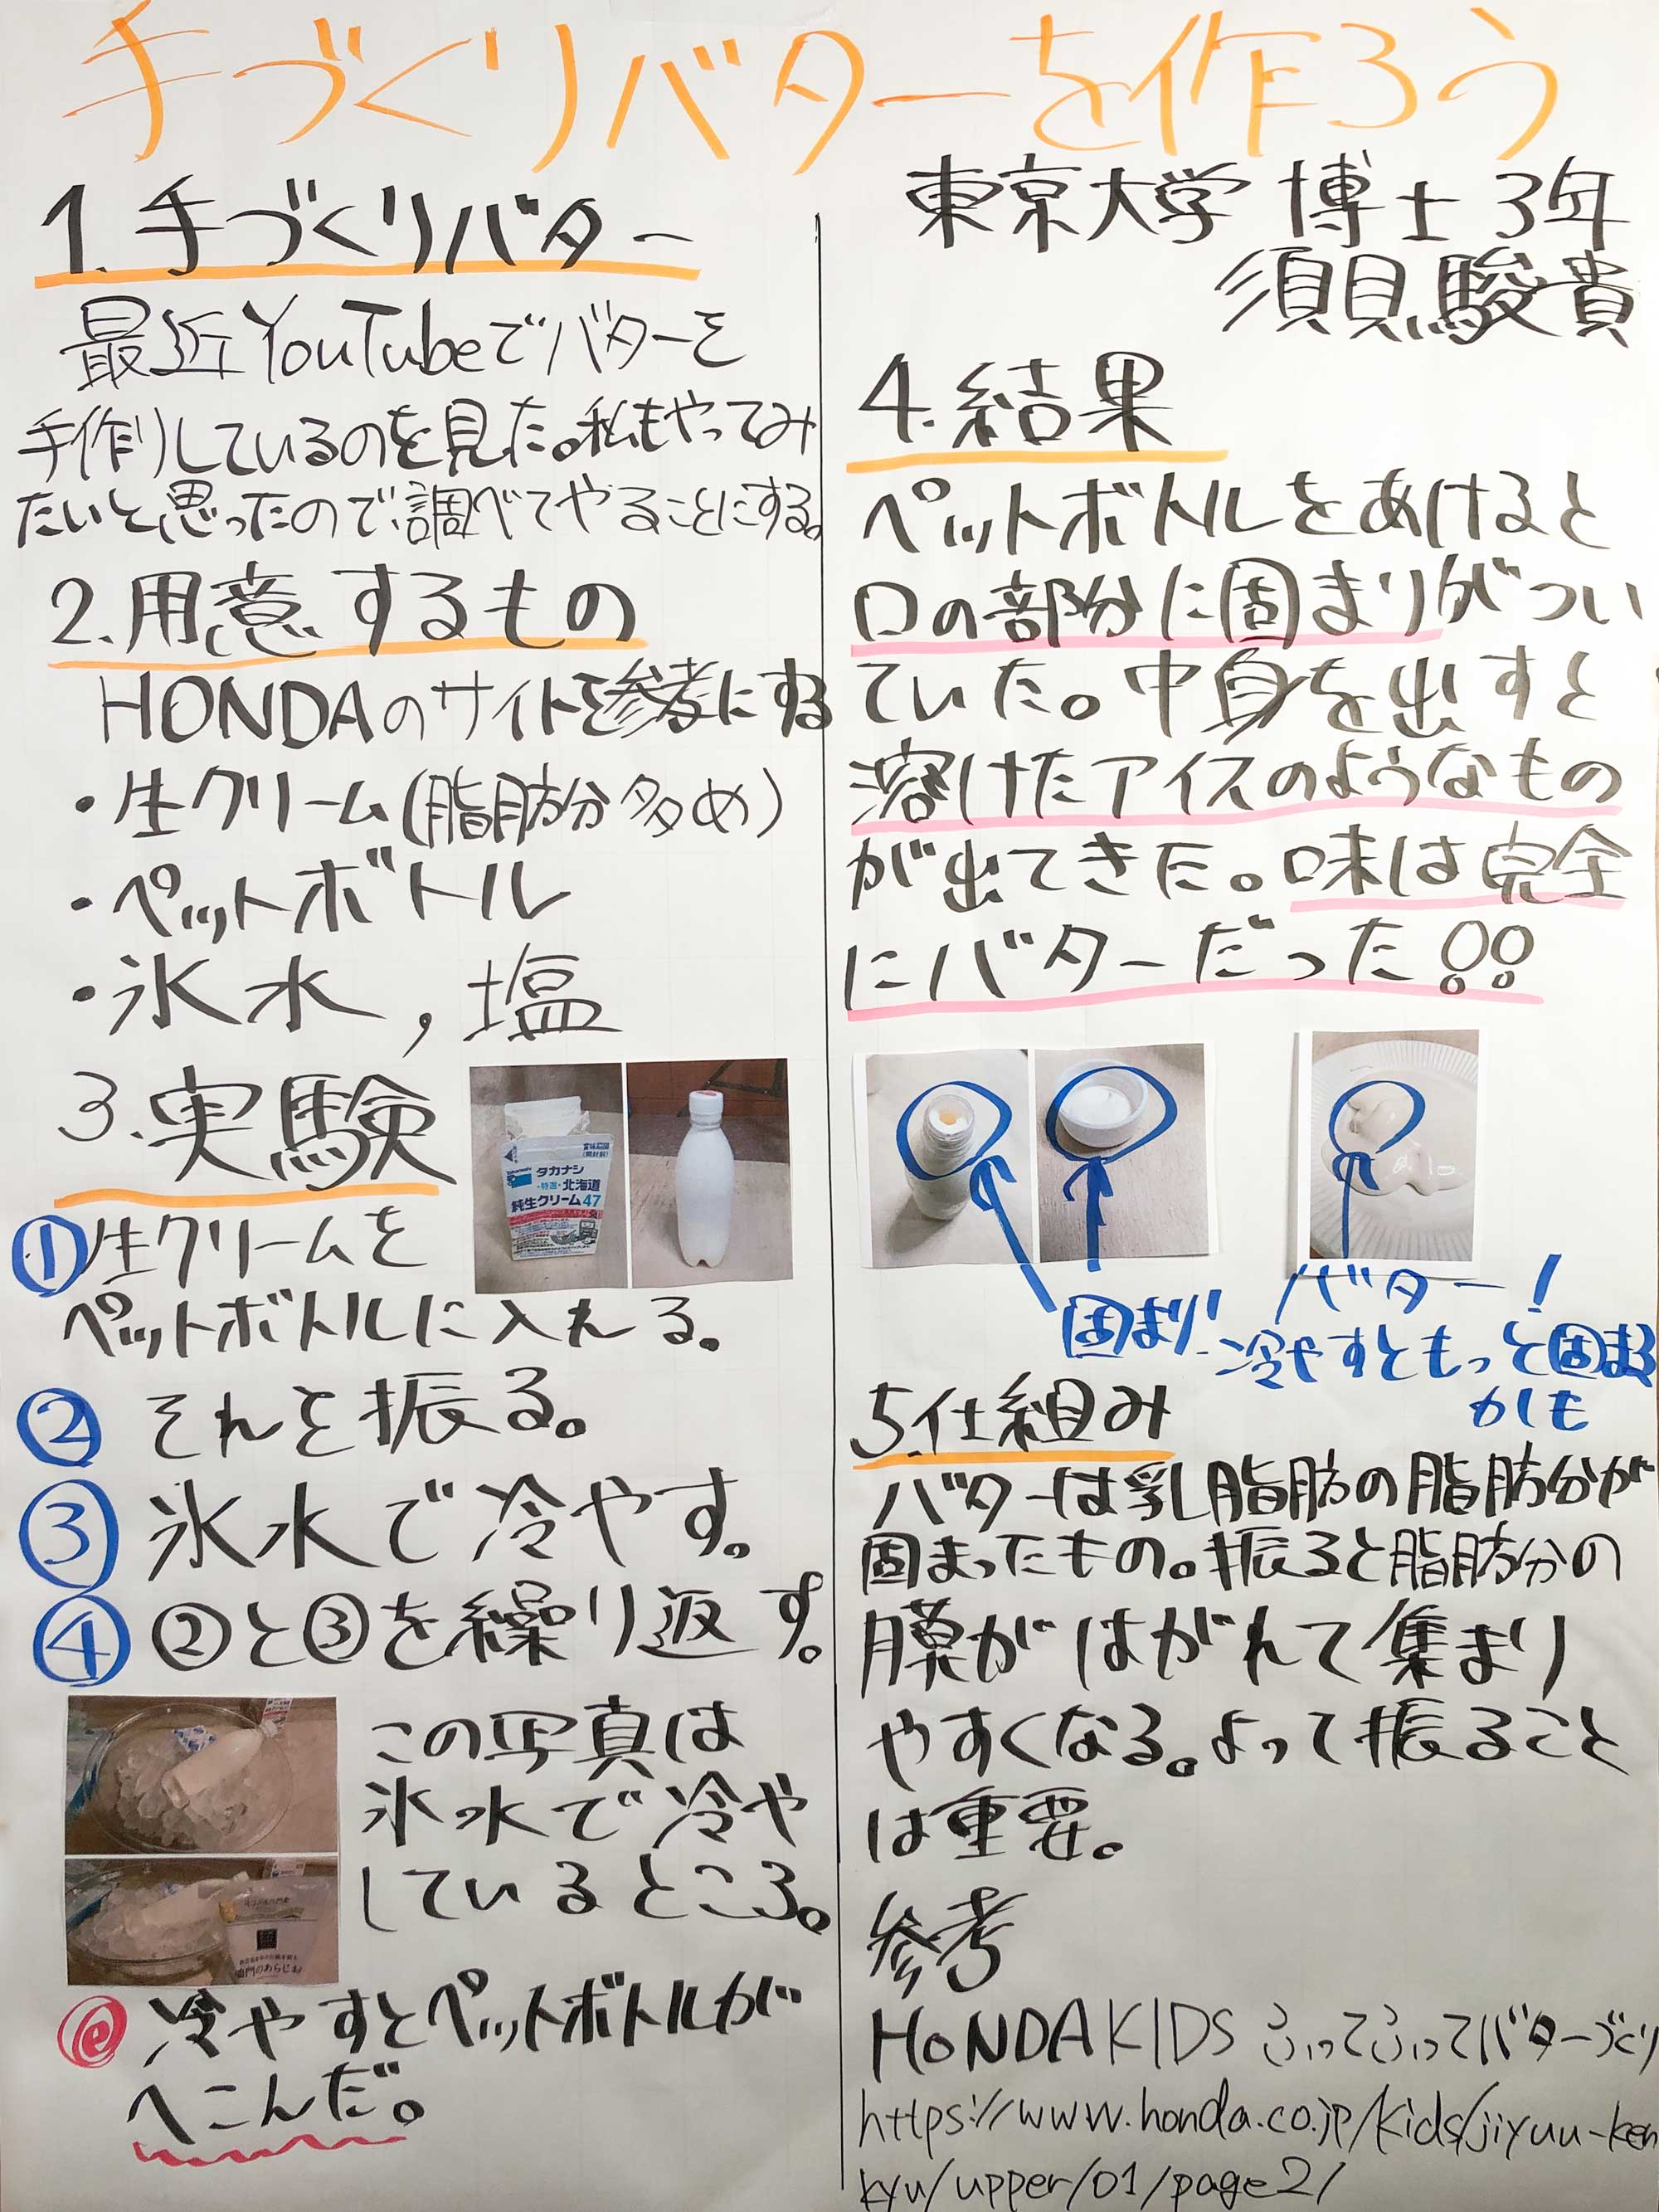 手づくりバターを作ろう
東京大学 博士3年
須貝駿貴
1.手づくりバター
最近YouTubeでバターを
手作りしているのを見た。私もやってみ
たいと思ったので、調べてやることにする。
2.用意するもの
HONDAのサイトを参考にする
・生クリーム(脂肪分多め)
・ペットボトル
・氷水,塩
3.実験
タカナシ
・特選・北海道
純生クリーム47
①生クリームを
ペットボトルに入れる。
②それを振る。
③氷水で冷やす。
④②と③を繰り返す。
この写真は
氷水で冷や
しているところ。
鳴門のあらじお
@冷やすとペットボトルが
へこんだ。
4.結果
ペットボトルをあけると
口の部分に固まりがつい
ていた。中身を出すと
溶けたアイスのようなもの
が出てきた。味は完全
にバターだった!!
固まり!
バター!
冷やすともっと固まる
かも
5.仕組み
バターは乳脂肪の脂肪分が
固まったもの。振ると脂肪分の
膜がはがれて集まり
やすくなる。よって振ること
は重要。
参考
HONDA KIDS ふってふってバターづくり
https://www.honda.co.jp/kids/jiyuu-ken
kyu/upper/01/page2/